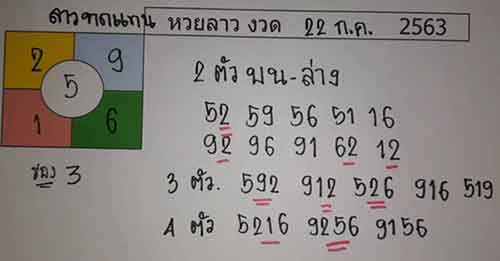 ดาวทดแทน หวยลาว งวด 22 ก.ค. 2563
2 9
5
1 6
ช่อง 3
2 ตัว บน-ล่าง
52 59 56 51 16
92 96 91 62 12
3 ตัว. 592 912 526 916 519
4 ตัว 5216 9256 9156